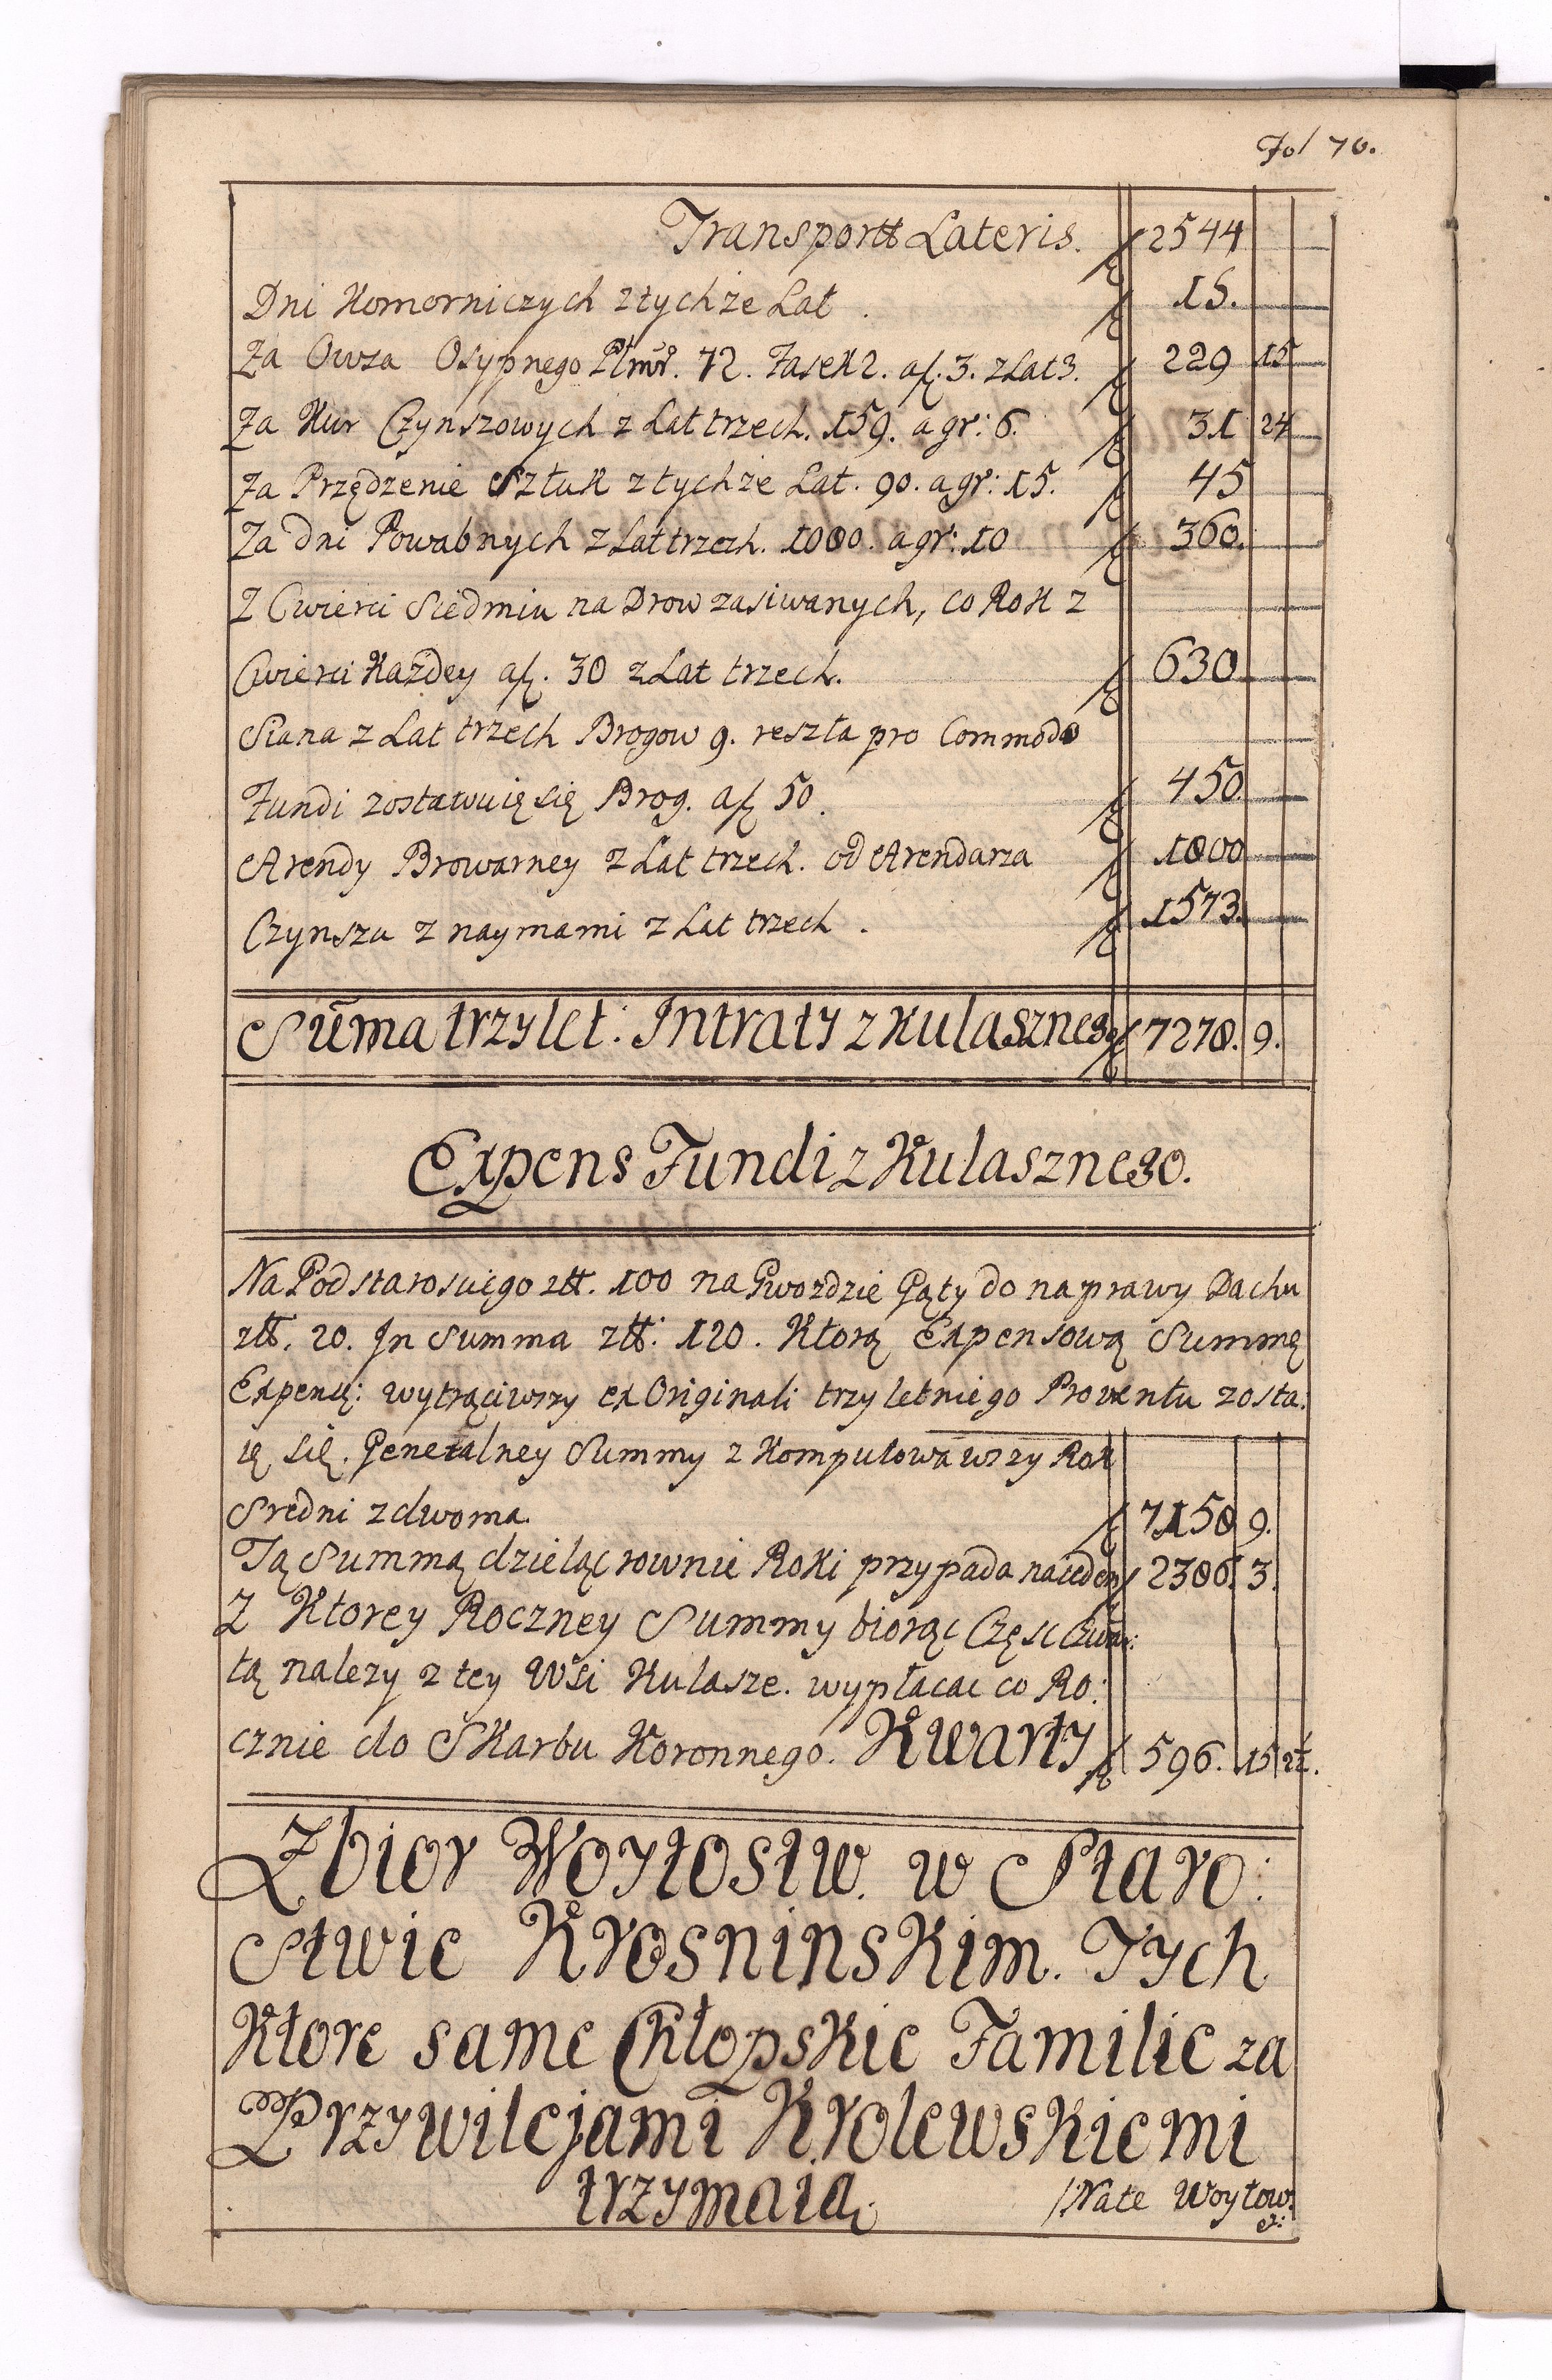 Fol 76.
Transportt Lateris. 2544
Dni Komorniczych z tychże Lat. 15.
Za Owsa Osypnego Płmr. 72. Fasek 2. a f. 3. z Lat 3. 229 15
Za Kur Czynszowych z Lat trzech. 159. a gr: 6. 31 24
Za Przędzenie Sztuk z tychże Lat. 90. a gr: 15. 45
Za dni Powabnych z Lat trzech. 1080. a gr: 10 360.
Z Cwierci Siedmiu na Drow zasiwanych, co Rok z
Cwierci Każdey a f. 30 z Lat trzech. 630.
Siana z Lat trzech Brogow 9. reszta pro Commodo
Fundi zostawuię się Brog. a f 50. 450
Arendy Browarney z Lat trzech. od Arendarza 1800
Czynszu z naymami z Lat trzech. 1573.
Sum̄a trzylet: Intraty z Kulasznego 7278. 9.
Expens Fundi z Kulasznego.
Na Podstarosciego złt. 100 na Gwozdzie Gąty do naprawy Dachu
złt. 20. In Summa złt: 120. Ktorą Expensową Summę
Expensę: wytrąciwszy ex Originali trzyletniego Prowentu zosta:
ię się. Generalney Summy z Komputowawszy Rok
Sredni z dwoma. 7158 9.
Tą Summą dzieląc rownie Roki przypada na ieden 2386. 3.
Z Ktorey Roczney Summy biorąc Częsc Czwar:
tą nalezy z tey Wsi Kulasze. wypłacac co Ro:
cznie do Skarbu Koronnego. Kwarty 596. 15 2½.
Zbior Woytostw. w Staro:
Stwie Krosninskim. Tych
Ktore same Chłopskie Familie za
Przywilejami Krolewskiemi
trzymaią. /Nate Woytow.